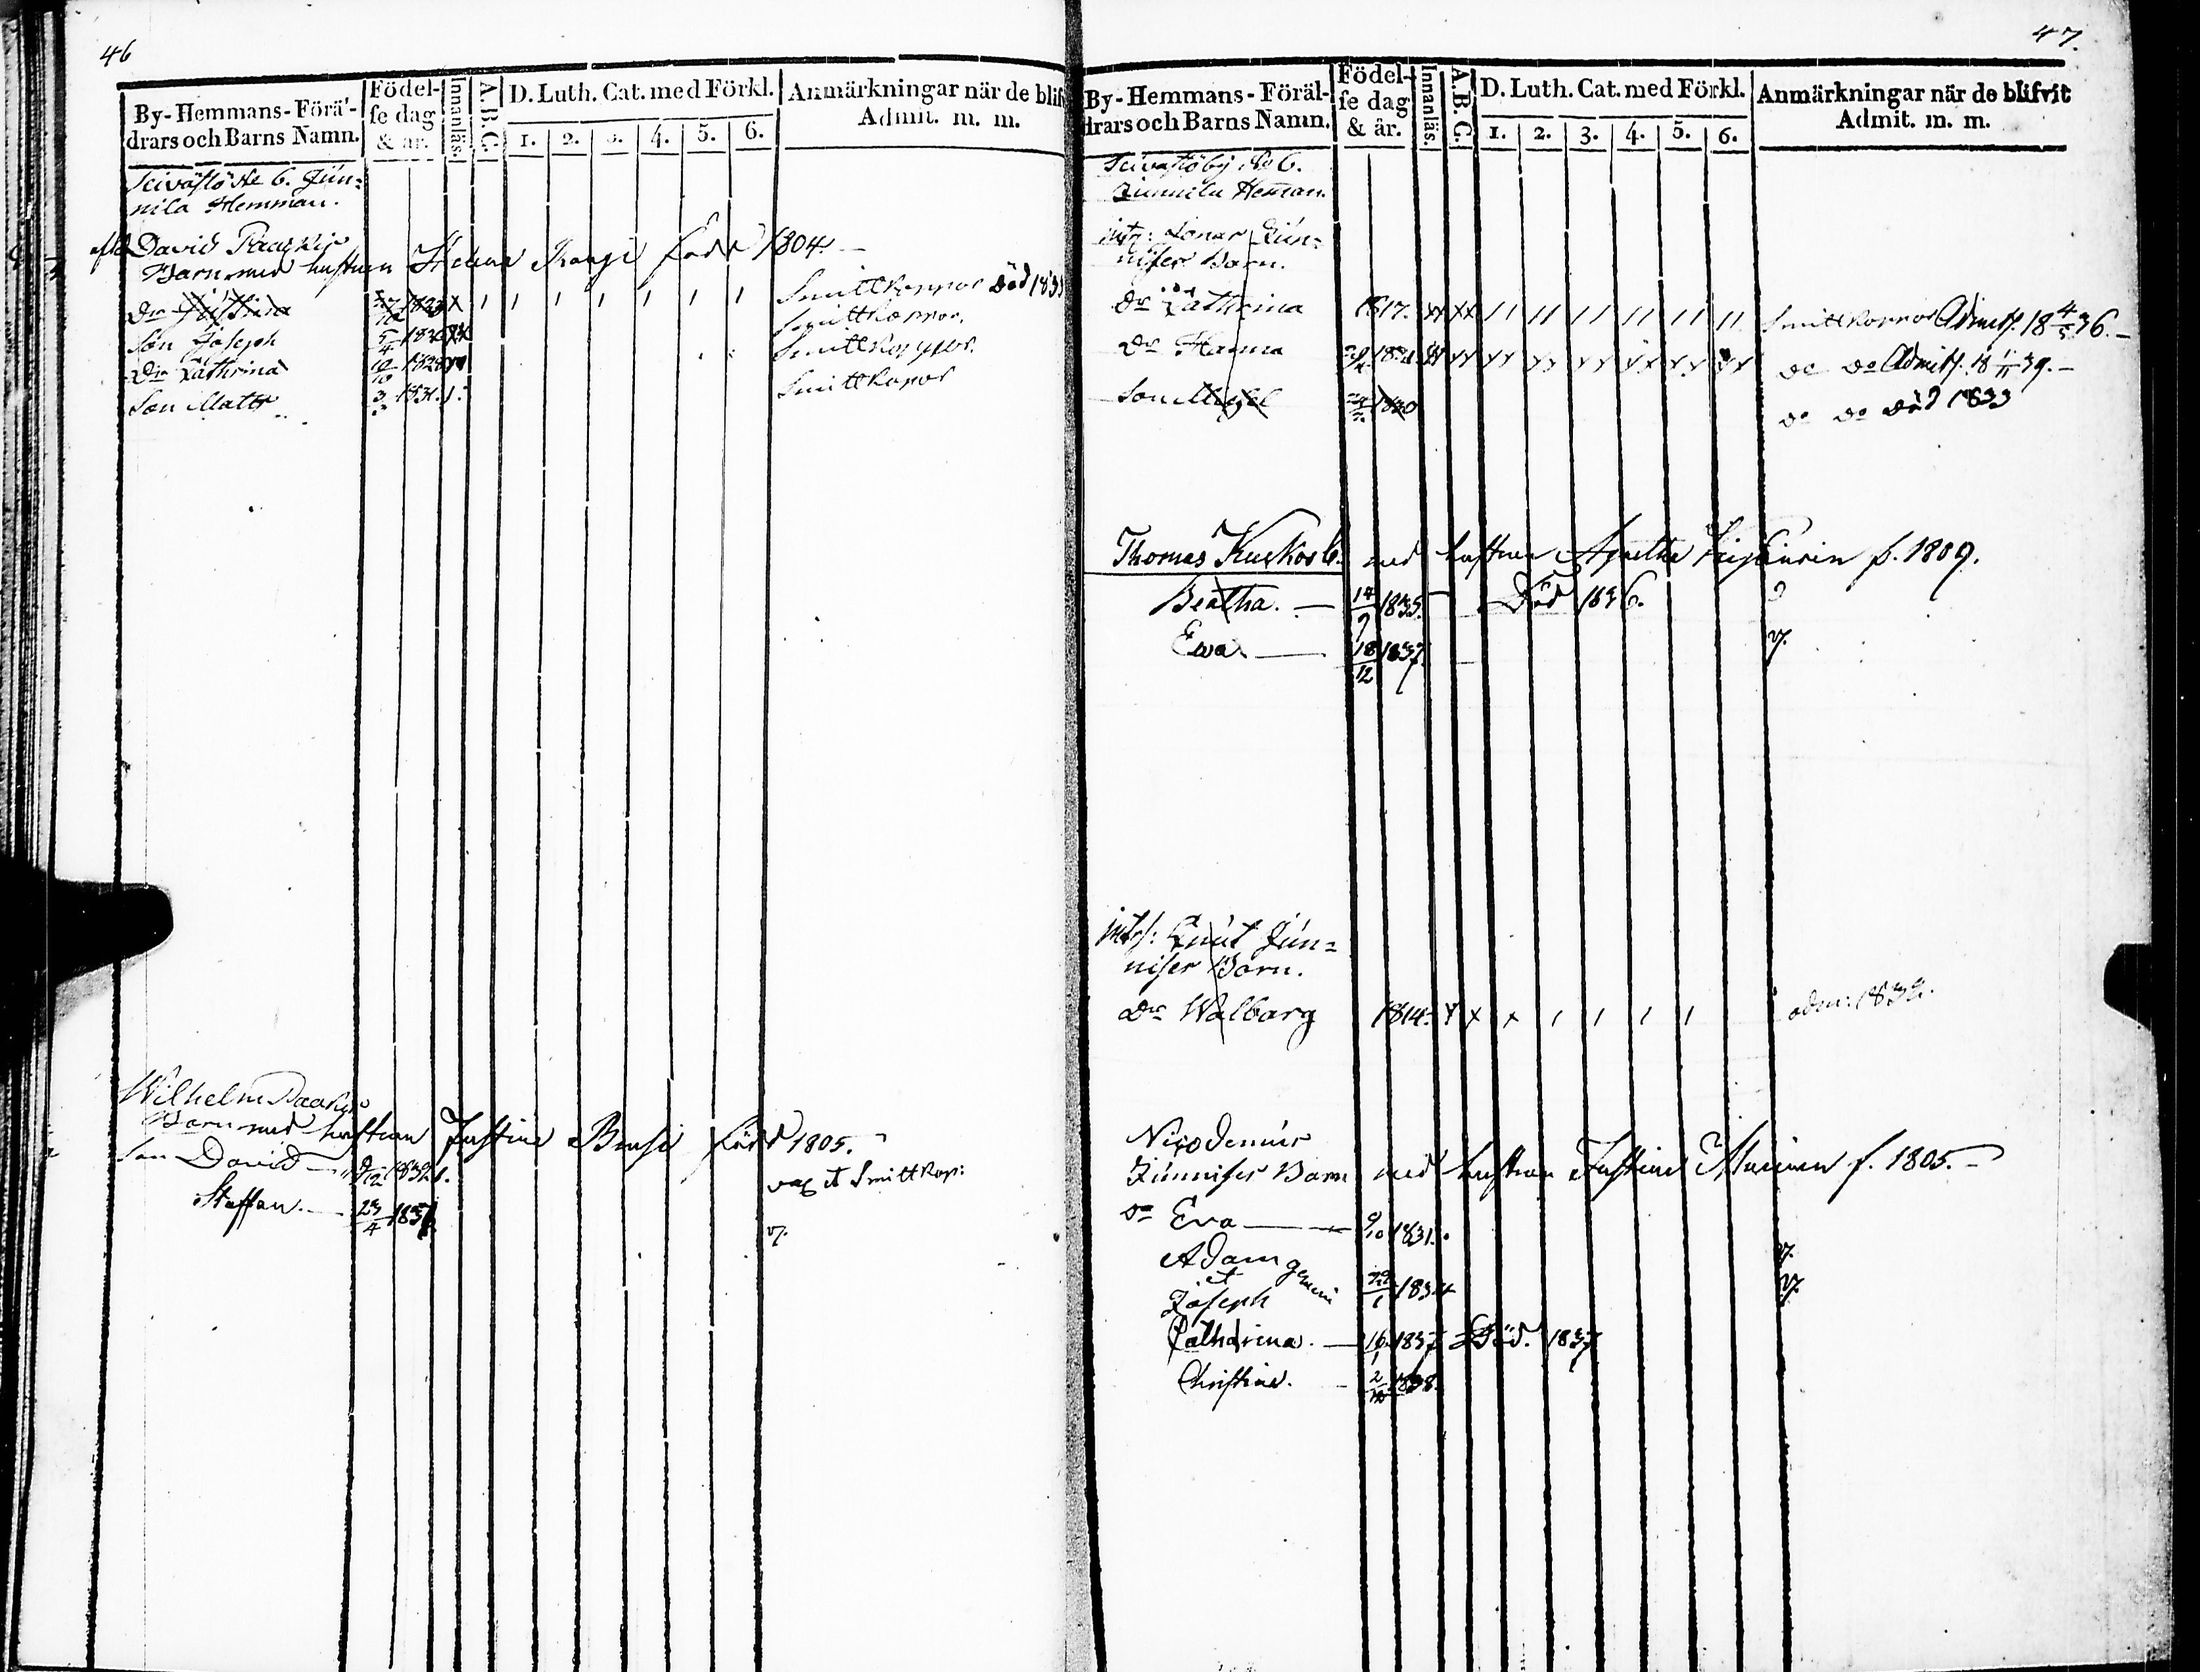 46
By-Hemmans-Förä-
drars och Barns Namn.
Födel-
se dag
& år.
Innanläs.
A.B.C.
D. Luth. Cat. med Förkl.
1. 2. 3. 4. 5. 6.
Anmärkningar när de blif
Admit. m. m.
No 6. Jún=
nila Hemman.
David
Barn med hustrun Helena Född 1804.
Dr Jústina 1823 x 1 1 1 1 1 1 1 Smittkoppor Död 183
Son Joseph 5/4 1826 Smittkoppor.
Dr Cathrina 12/10 1828 Smittkoppor.
Son Matts 3/3 1831. Smittkopor
Wilhelm
Barn med hustrun Justina Född 1805.
Son David 9/12 1832. vac et Smittkop:
Staffan. 23/4 183 v.
47.
By-Hemmans-Föräl-
drars och Barns Namn.
Födel-
se dag
& år.
Innanläs.
A.B.C.
D. Luth. Cat. med Förkl.
1. 2. 3. 4. 5. 6.
Anmärkningar när de blifvit
Admit. m. m.
by No 6.
Júnnila Hemman.
Jún=
nifer Barn.
Dr Cathrina 1817. xx xx 11 11 11 11 11 11 Smittkoppor Admitt. 18 4/5 36.
Dr Hanna 182 xx xx xx xx xx xx xx xx do do Admitt. 18 1/11 39.
Son Michel 1830 do do död 1833
Thomas Kuskos b. med hustrun Agnetha f. 1809.
Beatha. 14/9 1835. Död 1836.
Ewa 18/12 1837. v.
Knút Jún=
nifer Barn.
Dr Walborg 1814. x x x 1 1 1 1 adm: 1832.
Nicodemús
Júnnifer Barn med hustrun Justina f. 1805.
Dr Eva 9/10 1831.
Adam v.
et gemini 29/1 1834
Joseph v.
Catharina. 16/1 1837 Död. 1837
Christina. 2/12 1838.